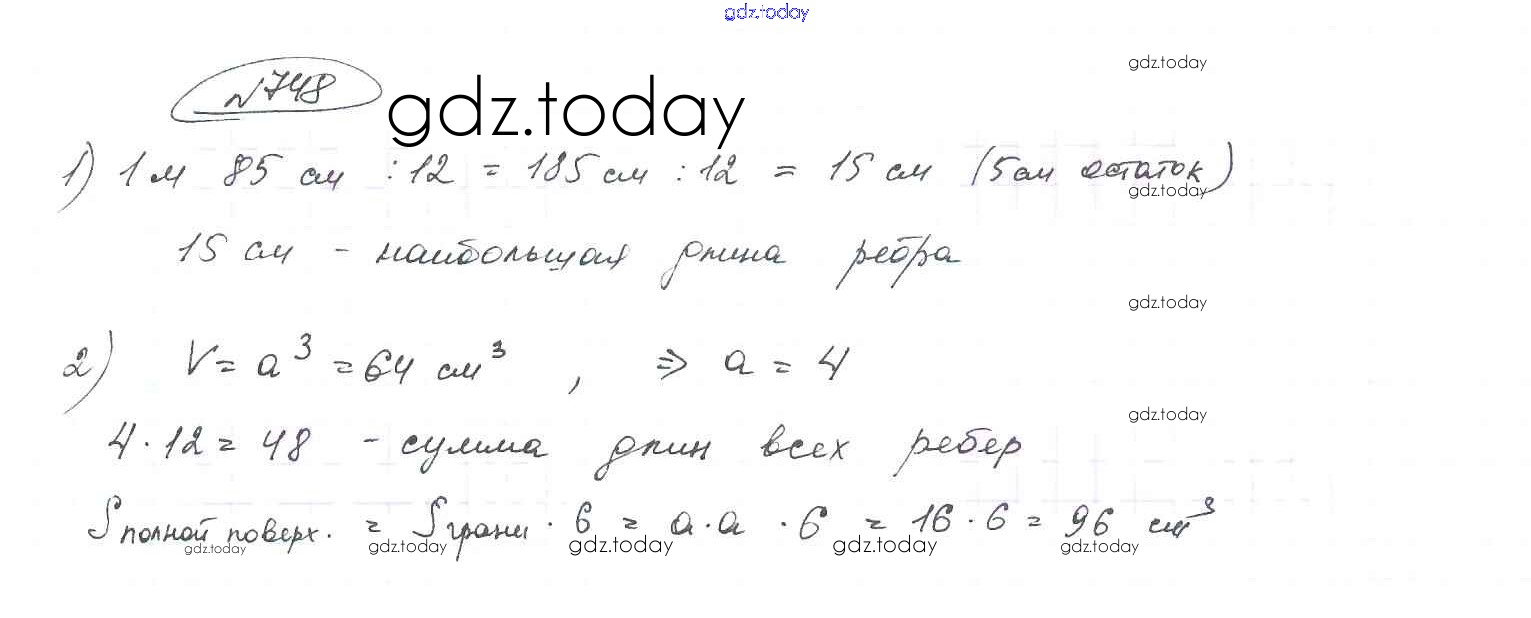 gdz.today
gdz.today
№748
gdz.today
1) 1 м 85 см : 12 = 185 см : 12 = 15 см (5 см остаток)
gdz.today
15 см - наибольшая длина ребра
gdz.today
2) V = a³ = 64 см³, ⇒ a = 4
gdz.today
4 · 12 = 48 - сумма длин всех ребер
S полной поверх. = S грани · 6 = a · a · 6 = 16 · 6 = 96 см³
gdz.today gdz.today gdz.today gdz.today gdz.today